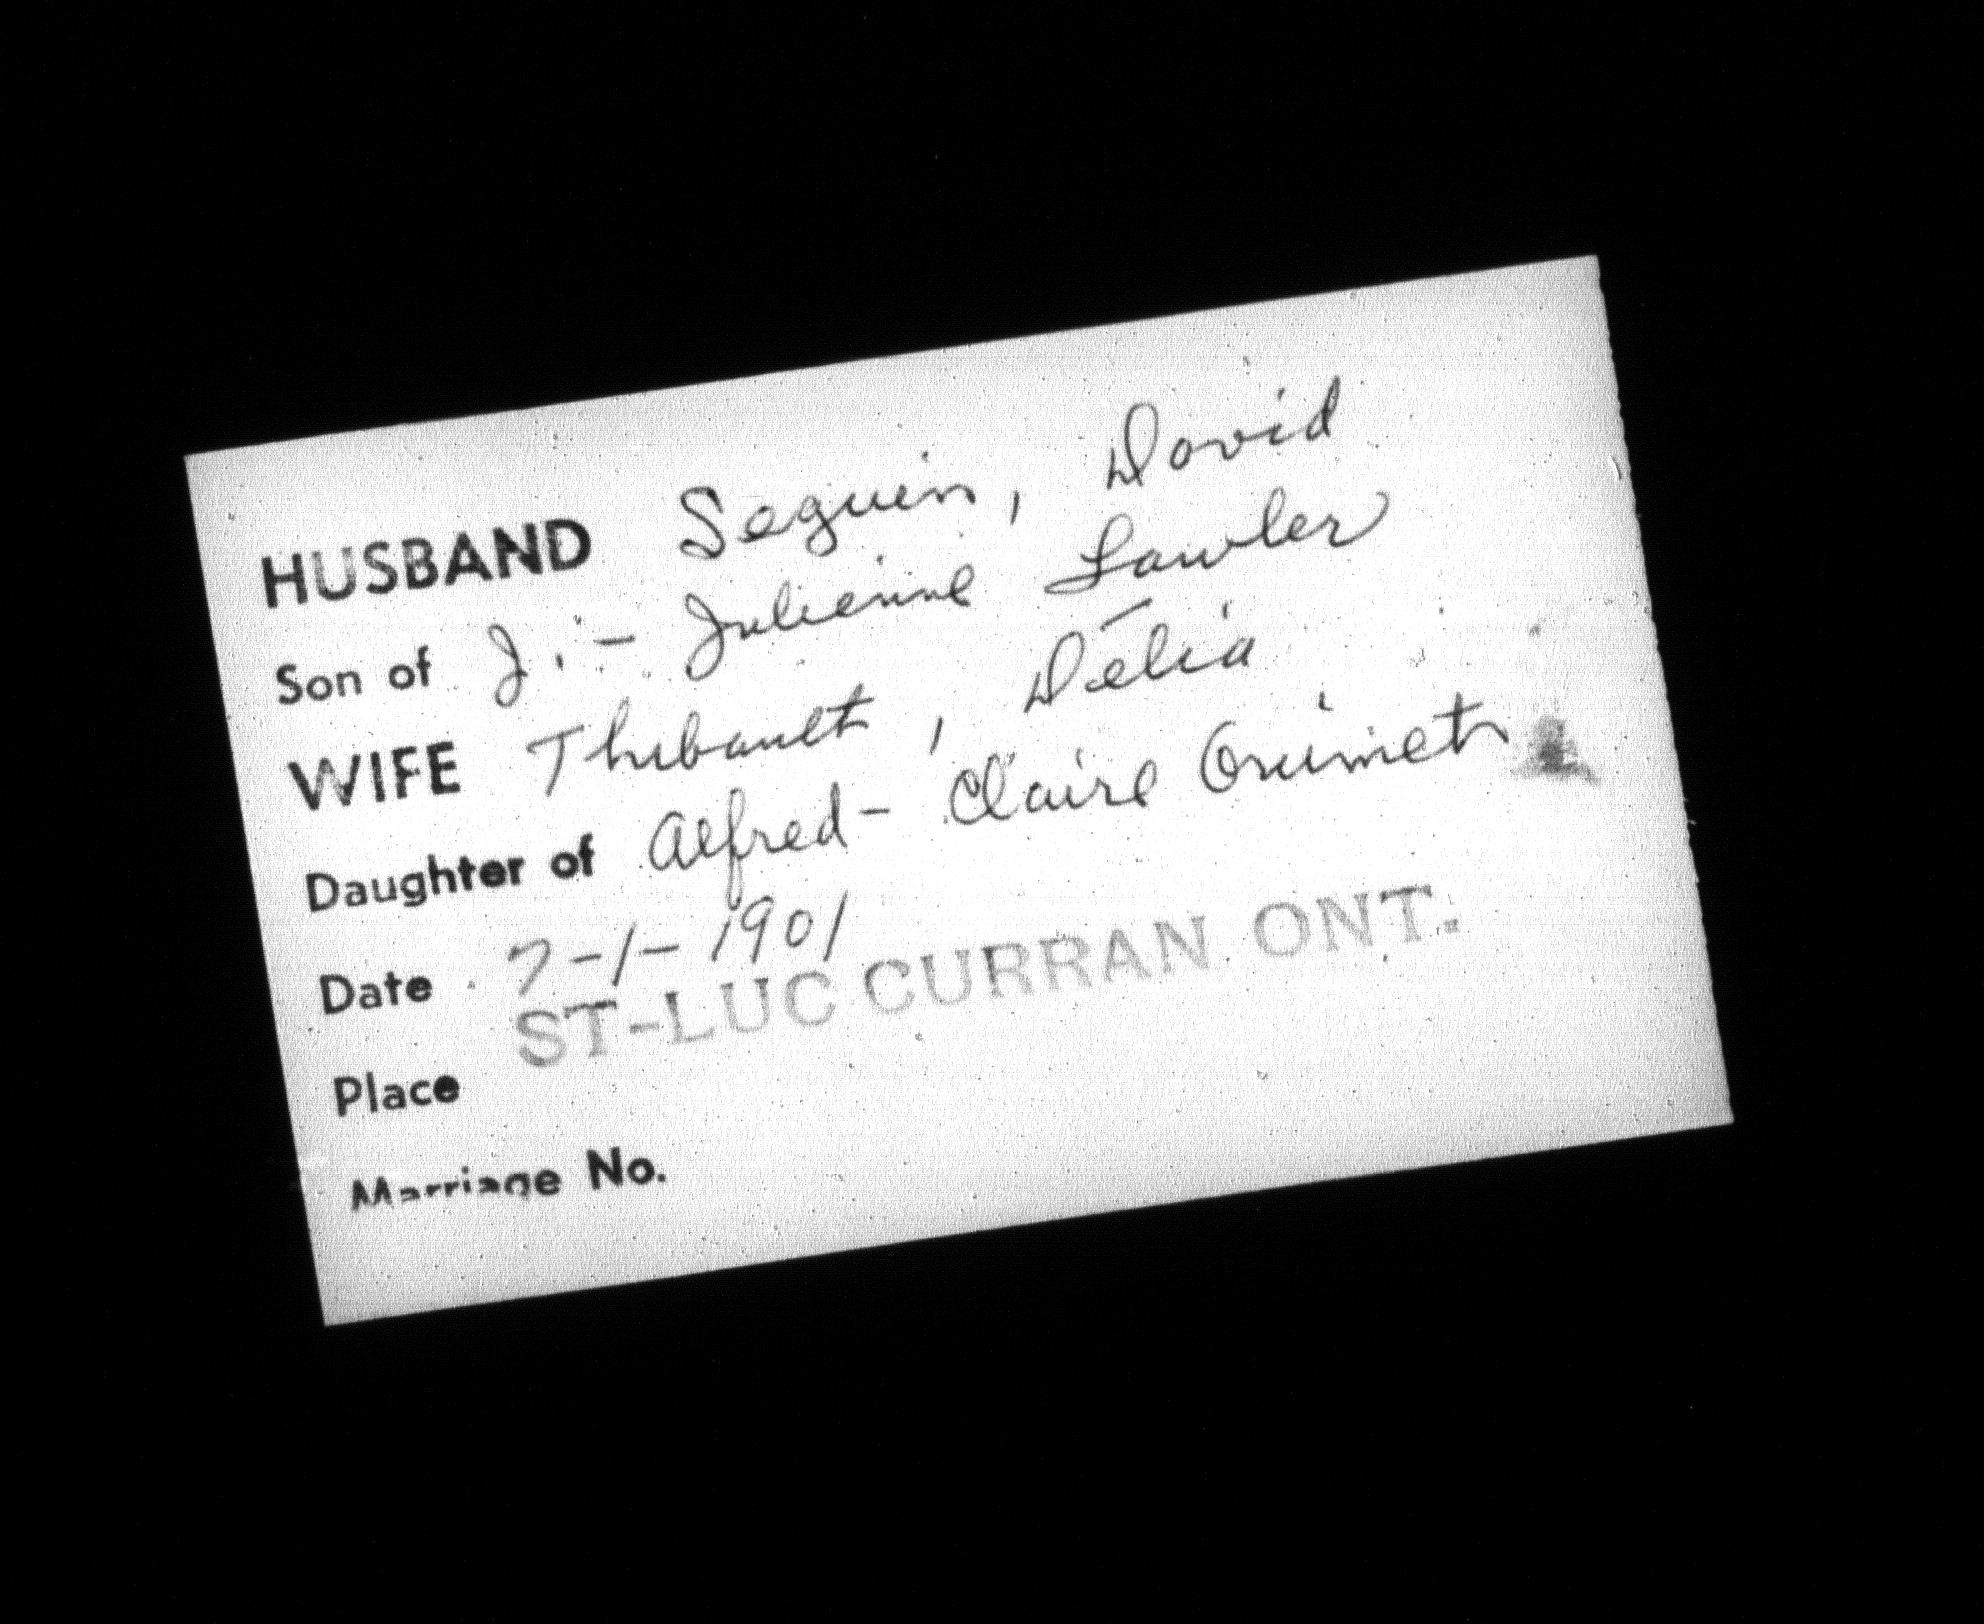 HUSBAND Seguin, David
Son of J. - Julienne Lawler
WIFE Thibault, Délia
Daughter of Alfred - Claire Ouimet
Date 7-1-1901
Place ST-LUC CURRAN ONT.
Marriage No.